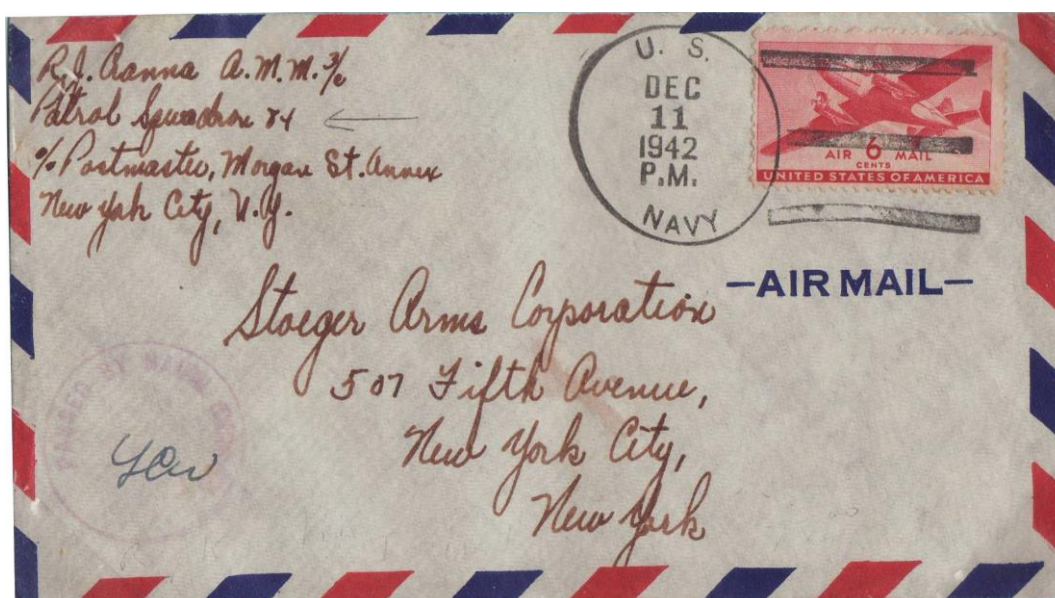 R.J. Aanna A.M.M. 3/c
Patrol Squadron 84
c/o Postmaster, Morgan St. Annex
New York City, N.Y.
U. S.
DEC
11
1942
P.M.
NAVY
AIR 6 MAIL
CENTS
UNITED STATES OF AMERICA
—AIR MAIL—
Stoeger Arms Corporation
507 Fifth Avenue,
New York City,
New York
PASSED BY NAVAL